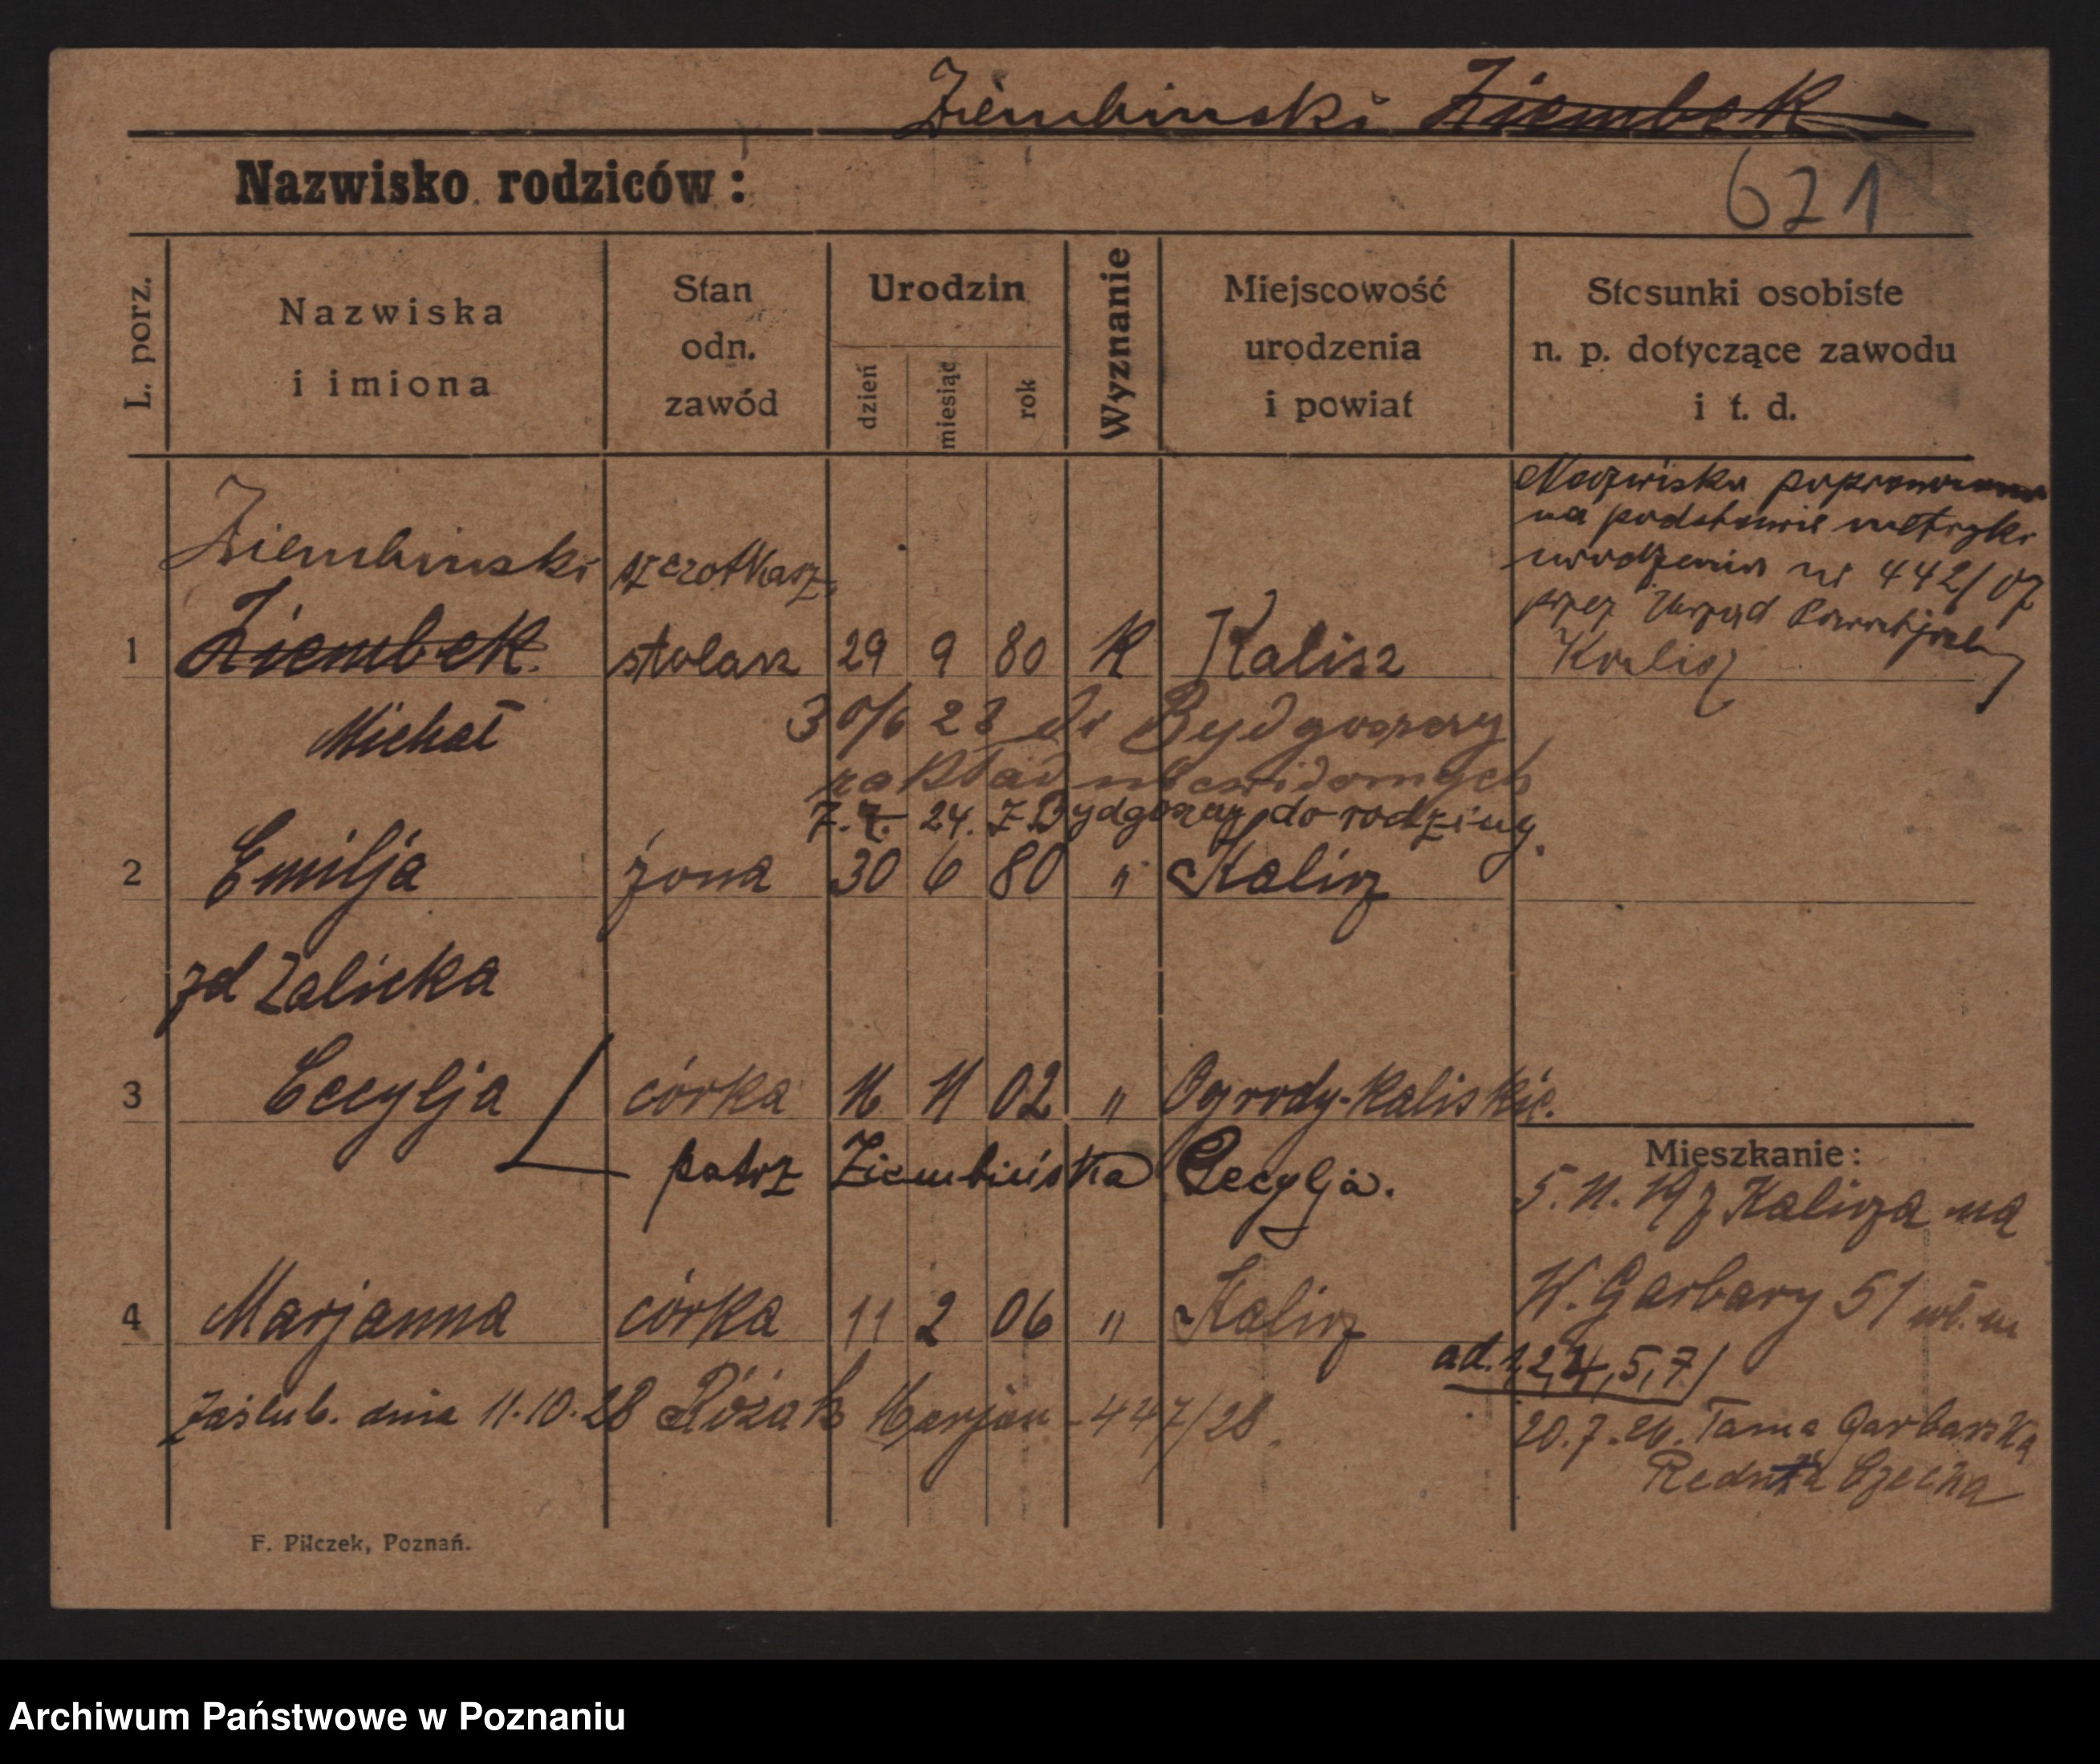 Ziembinski Ziembek
Nazwisko rodziców:
671
L. porz.
Nazwiska
i imiona
Stan
odn.
zawód
Urodzin
dzień
miesiąc
rok
Wyznanie
Miejscowość
urodzenia
i powiat
Stosunki osobiste
n. p. dotyczące zawodu
i t. d.
Nazwisko poprawiono
na podstawie metryki
urodzenia nr 442/07
przez Urząd
Kalisz
Ziembinski szczotkarz,
1 Ziembek stolarz 29 9 80 K Kalisz
Michał
30/6 23 do Bydgoszczy
zakład niewidomych
7.7. 24. z Bydgoszczy do rodziny.
2 Emilja żona 30 6 80 " Kalisz
zd Zalicka
3 Cecylja córka 16 11 02 " Ogrody-Kaliskie.
patrz Ziembińska Cecylja.
Mieszkanie:
5. 11. 19 z Kalisza na
W. Garbary 51 wł. m
4 Marjanna córka 11 2 06 " Kalisz
ad. 1,2,4,5,7/
zaślub. dnia 11.10.28 Różak Marjan - 447/28.
20.7.26. Tama Garbarska
Reduta Czecha
F. Pilczek, Poznań.
Archiwum Państwowe w Poznaniu